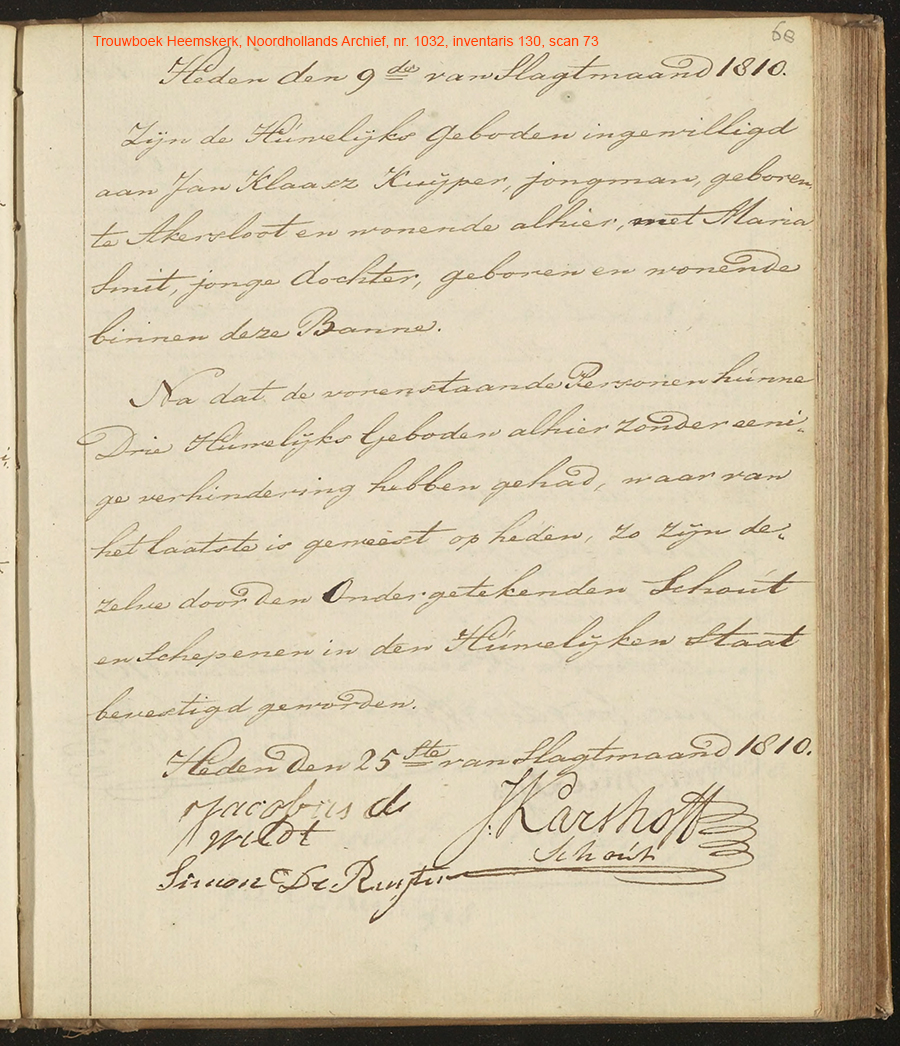 68
Trouwboek Heemskerk, Noordhollands Archief, nr. 1032, inventaris 130, scan 73
Heden den 9de van Slagtmaand 1810.
Zijn de Húwelijks Geboden ingewilligd
aan Jan Klaasz Kuÿper, jongman, geboren
te Akersloot en wonende alhier, met Maria
Smit, jonge dochter, geboren en wonende
binnen deze Banne.
Na dat de vorenstaande Personen húnne
Drie Huwelijks Geboden alhier zonder eeni-
ge verhindering hebben gehad, waar van
het laatste is geweest op heden, zo zijn de-
zelve door den Ondergetekenden Schoút
en Schepenen in den Húwelijken Staat
bevestigd geworden.
Heden den 25ste van Slagtmaand 1810.
Jacobus de
Wildt
J. Karshoff
Schoút
Simon De Ruyter